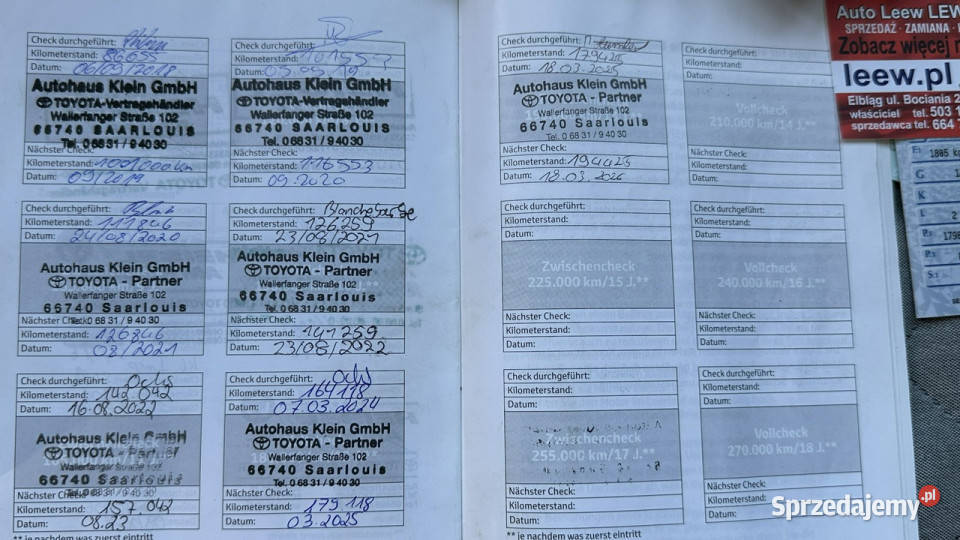 Check durchgeführt:
Kilometerstand: 86655
Datum: 06/09/2018
Autohaus Klein GmbH
TOYOTA-Vertragshändler
Wallerfanger Straße 102
66740 SAARLOUIS
Tel. 0 68 31 / 9 40 30
Nächster Check:
Kilometerstand:
Datum: 09/2019
Check durchgeführt:
Kilometerstand: 101553
Datum: 05.09.19
Autohaus Klein GmbH
TOYOTA-Vertragshändler
Wallerfanger Straße 102
66740 SAARLOUIS
Tel. 0 68 31 / 9 40 30
Nächster Check:
Kilometerstand: 116553
Datum: 09.2020
Check durchgeführt:
Kilometerstand: 111846
Datum: 24/08/2020
Autohaus Klein GmbH
TOYOTA - Partner
Wallerfanger Straße 102
66740 Saarlouis
Tel. 0 68 31 / 9 40 30
Nächster Check:
Kilometerstand: 126846
Datum: 08/2021
Check durchgeführt:
Kilometerstand: 126259
Datum: 23/08/2021
Autohaus Klein GmbH
TOYOTA - Partner
Wallerfanger Straße 102
66740 Saarlouis
Tel. 0 68 31 / 9 40 30
Nächster Check:
Kilometerstand: 141259
Datum: 23/08/2022
Check durchgeführt: Ochs
Kilometerstand: 142 042
Datum: 16.08.2022
Autohaus Klein GmbH
TOYOTA - Partner
Wallerfanger Straße 102
66740 Saarlouis
Tel. 0 68 31 / 9 40 30
Nächster Check:
Kilometerstand: 157 042
Datum: 08.23
Check durchgeführt:
Kilometerstand: 164118
Datum: 07.03.2024
Autohaus Klein GmbH
TOYOTA - Partner
Wallerfanger Straße 102
66740 Saarlouis
Tel. 0 68 31 / 9 40 30
Nächster Check:
Kilometerstand: 179 118
Datum: 03.2025
** je nachdem was zuerst eintritt
Check durchgeführt:
Kilometerstand: 179425
Datum: 18.03.2025
Autohaus Klein GmbH
TOYOTA - Partner
Wallerfanger Straße 102
66740 Saarlouis
Tel. 0 68 31 / 9 40 30
Nächster Check:
Kilometerstand: 194425
Datum: 18.03.2026
Check durchgeführt:
Kilometerstand:
Datum:
Vollcheck
210.000 km/14 J.**
Nächster Check:
Kilometerstand:
Datum:
Check durchgeführt:
Kilometerstand:
Datum:
Zwischencheck
225.000 km/15 J.**
Nächster Check:
Kilometerstand:
Datum:
Check durchgeführt:
Kilometerstand:
Datum:
Vollcheck
240.000 km/16 J.**
Nächster Check:
Kilometerstand:
Datum:
Check durchgeführt:
Kilometerstand:
Datum:
Zwischencheck
255.000 km/17 J.**
Nächster Check:
Kilometerstand:
Datum:
Check durchgeführt:
Kilometerstand:
Datum:
Vollcheck
270.000 km/18 J.**
Nächster Check:
Kilometerstand:
Datum:
** je nachdem was zuerst eintritt
Auto Leew LEW
SPRZEDAŻ - ZAMIANA -
Zobacz więcej n
leew.pl
Elbląg ul. Bociania 2
właściciel tel. 503 1
sprzedawca tel. 664 7
1805 k
G
K
L 2
Sprzedajemy.pl